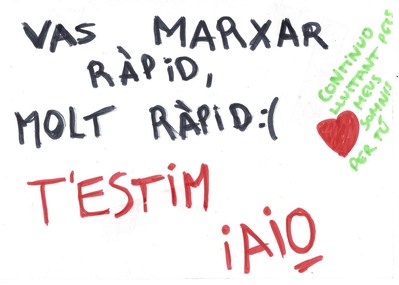 VAS MARXAR
RÀPiD,
MOLT RÀPiD:(
T'ESTiM
iAiO
CONTiNUO
LLUiTANT PELS
MEUS
SOMNiS
PER TU